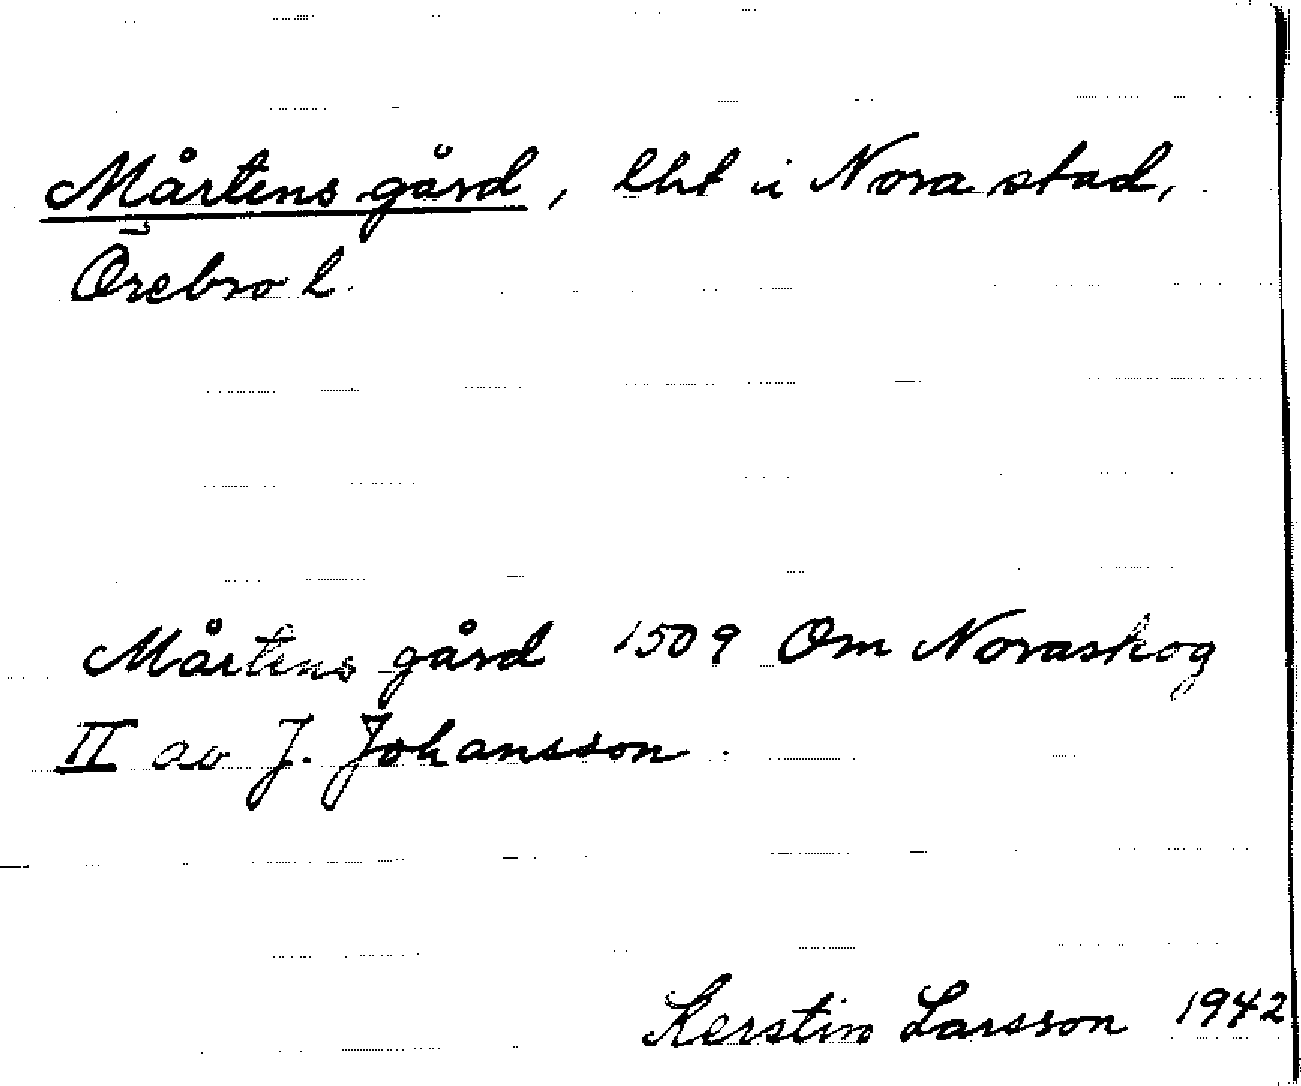 Mårtens gård, lht i Nora stad,
Örebro l.
Mårtens gård 1509 Om Noraskog
II av J. Johansson.
Kerstin Larsson 1942